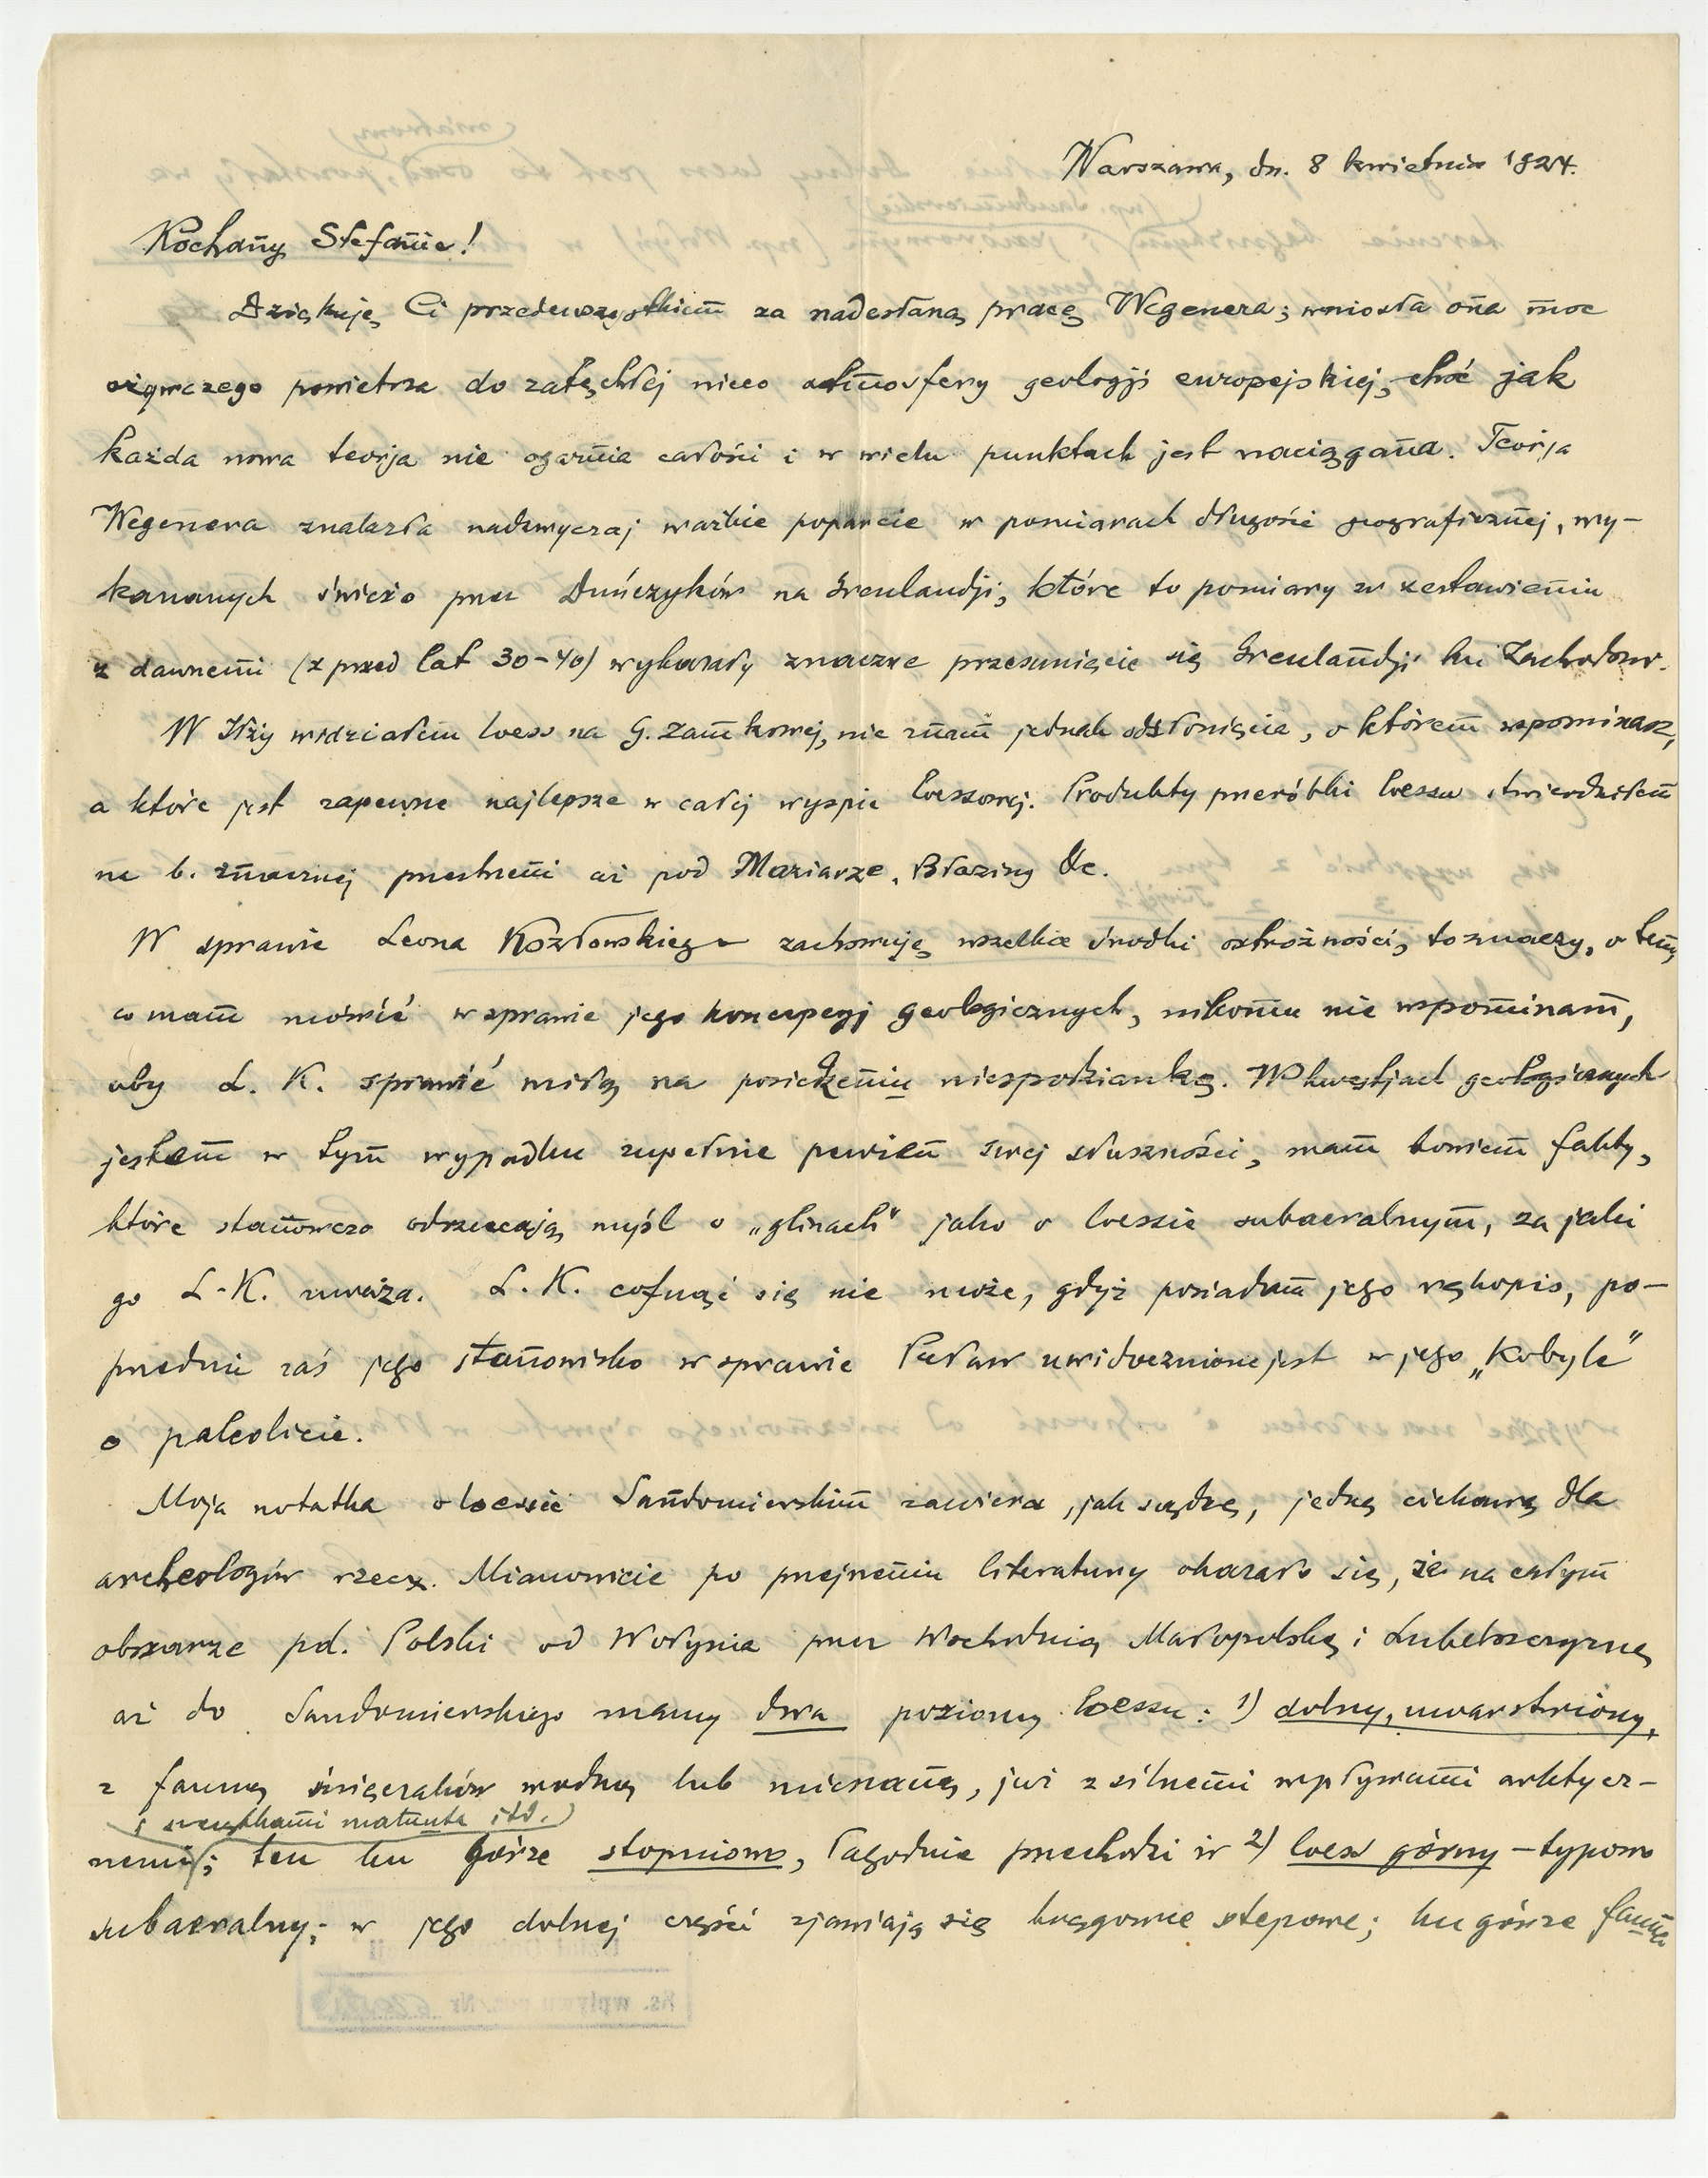 Warszawa, dn. 8 kwietnia 1924.
Kochany Stefanie!
Dziękuję Ci przedewszystkiem za nadesłaną pracę Wegenera; wniosła ona moc
ożywczego powietrza do zatęchłej nieco atmosfery geologji europejskiej, choć jak
każda nowa teorja nie ogarnia całości i w wielu punktach jest naciągana. Teorja
Wegenera znalazła nadzwyczaj ważkie poparcie w pomiarach długości geograficznej, wy-
konanych świeżo przez Duńczyków na Grenlandji, które to pomiary w zestawieniu
z dawnemi (z przed lat 30-40) wykazały znaczne przesunięcie się Grenlandji ku Zachodowi.
W Iłży widziałem loess na G. Zamkowej, nie znam jednak odsłonięcia, o którem wspominasz,
a które jest zapewne najlepsze w całej wyspie loessowej. Produkty przeróbki loessu stwierdziłem
na b. znacznej przestrzeni aż pod Maziarze, Błaziny &c.
W sprawie Leona Kozłowskiego zachowuję wszelkie środki ostrożności, to znaczy, o tem,
co mam mówić w sprawie jego koncepcyj geologicznych, nikomu nie wspominam,
aby L. K. sprawić miłą na posiedzeniu niespodziankę. W kwestjach geologicznych
jestem w tym wypadku zupełnie pewien swej słuszności, mam bowiem fakty,
które stanowczo odrzucają myśl o „glinach" jako o loessie subaeralnym, za jaki
go L. K. uważa. L. K. cofnąć się nie może, gdyż posiadam jego rękopis, po-
przednie zaś jego stanowisko w sprawie Puław uwidocznione jest w jego „Kobyle"
o paleolicie.
Moja notatka o loessie Sandomierskim zawiera, jak sądzę, jedną ciekawą dla
archeologów rzecz. Mianowicie po przejrzeniu literatury okazało się, że na całym
obszarze pd. Polski od Wołynia przez Wschodnią Małopolskę i Lubelszczyznę
aż do Sandomierskiego mamy dwa poziomy loessu: 1) dolny, uwarstwiony,
z fauną mięczaków wodną lub mieszaną, już z silnemi wpływami arktycz-
i szczątkami mamuta itd.
nemi; ten ku górze stopniowo, łagodnie przechodzi w 2) loess górny – typowo
subaeralny; w jego dolnej części zjawiają się kręgowce stepowe; ku górze fauna